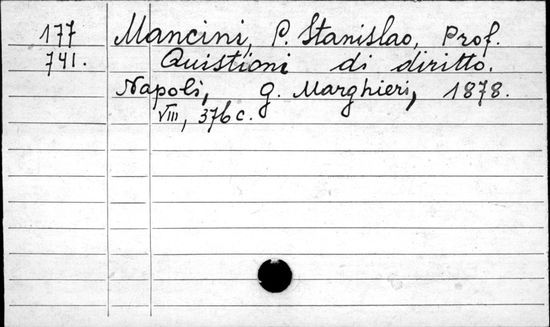 177 Mancini, P. Stanislao, Prof.
741. Quistioni di diritto.
Napoli, G. Marghieri, 1878.
VIII, 376 c.